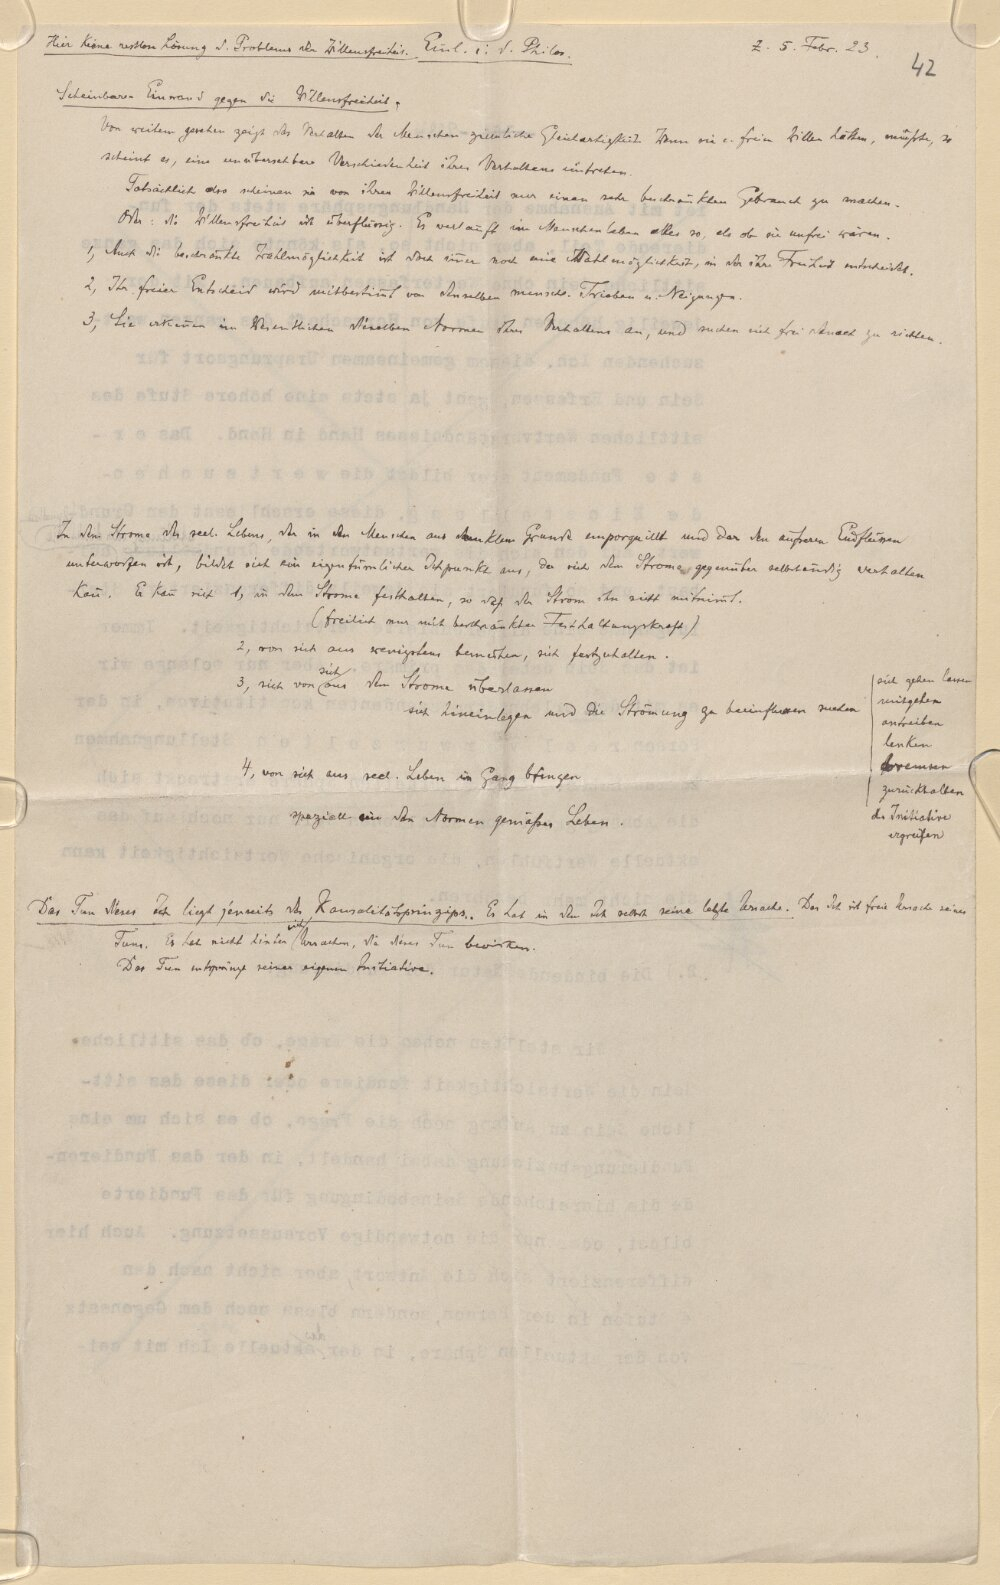 Hier keine restlose Lösung d. Problems der Willensfreiheit. Einl. i. d. Philos. Z. 5. Febr. 23.
42
Scheinbarer Einwand gegen die Willensfreiheit.
Von weitem gesehen zeigt das Verhalten der Menschen ziemliche Gleichartigkeit. Wenn sie e. freien Willen hätten, müßte, so
scheint es, eine unübersehbare Verschiedenheit ihres Verhaltens eintreten.
Tatsächlich also scheinen sie von ihrer Willensfreiheit nur einen sehr beschränkten Gebrauch zu machen.
Oder: die Willensfreiheit ist überflüssig. Es verläuft im Menschenleben alles so, als ob sie unfrei wären.
1, Auch die beschränkte Wahlmöglichkeit ist doch immer noch eine Wahlmöglichkeit, in der ihre Freiheit entscheidet.
2, Ihr freier Entscheid wird mitbestimmt von denselben menschl. Trieben u. Neigungen.
3, Sie erkennen im Wesentlichen dieselben Normen ihres Verhaltens an, und suchen sich frei danach zu richten.
In dem Strome des seel. Lebens, der in den Menschen aus dunklem Grunde emporquillt und der den äußeren Einflüssen
unterworfen ist, bildet sich ein eigentümlicher Ichpunkt aus, der sich dem Strome gegenüber selbständig verhalten
kann. Er kann sich 1, in dem Strome festhalten, so daß der Strom ihn nicht mitnimmt.
(freilich nur mit beschränkter Festhaltungskraft)
2, von sich aus wenigstens bemühen, sich festzuhalten.
3, sich von sich aus dem Strome überlassen
sich hineinlegen und die Strömung zu beeinflussen suchen
sich gehen lassen
mitgehen
antreiben
lenken
bremsen
zurückhalten
die Initiative
ergreifen
4, von sich aus seel. Leben in Gang bringen
speziell ein den Normen gemäßes Leben.
Das Tun dieses Ich liegt jenseits des Kausalitätsprinzips. Es hat in dem Ich selbst seine letzte Ursache. Das Ich ist freie Ursache seines
Tuns. Es hat nicht hinter sich Ursachen, die dieses Tun bewirken.
Das Tun entspringt seiner eigenen Initiative.